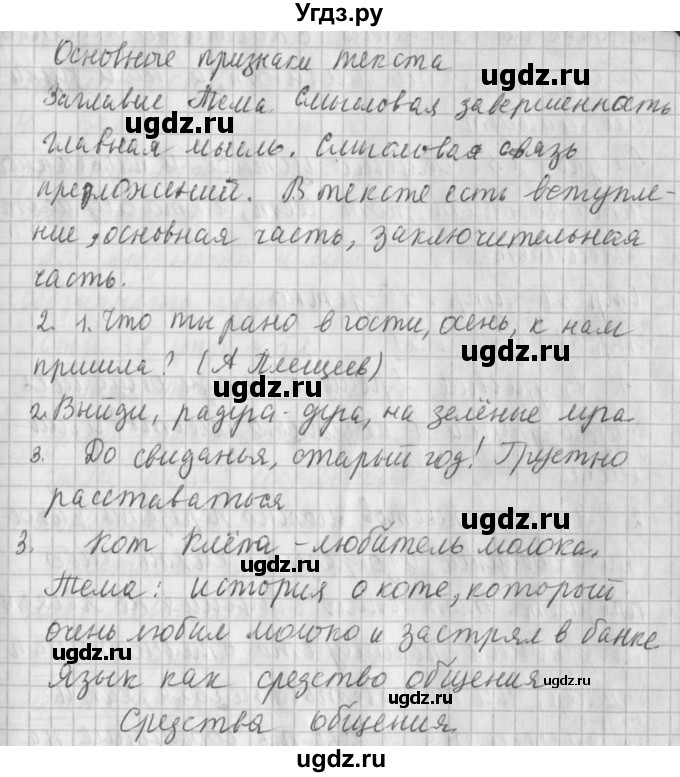 Угдз.ру
Основные признаки текста
Заглавие Тема Смысловая завершенность
ugdz.ru ugdz.ru
главная мысль. Смысловая связь
предложений. В тексте есть вступле-
ugdz.ru
ние, основная часть, заключительная
часть.
2. 1. Что ты рано в гости, осень, к нам
ugdz.ru
пришла? (А Плещеев)
ugdz.ru
2. Выйди, радуга-дуга, на зелёные луга
3. До свиданья, старый год! Грустно
ugdz.ru
расставаться
ugdz.ru
3. Кот Клёпа - любитель молока.
ugdz.ru
Тема: история о коте, который
очень любил молоко и застрял в банке
ugdz.ru ugdz.ru
Язык как средство общения
ugdz.ru
ugdz.ru
Средства общения.
ugdz.ru ugdz.ru
ugdz.ru